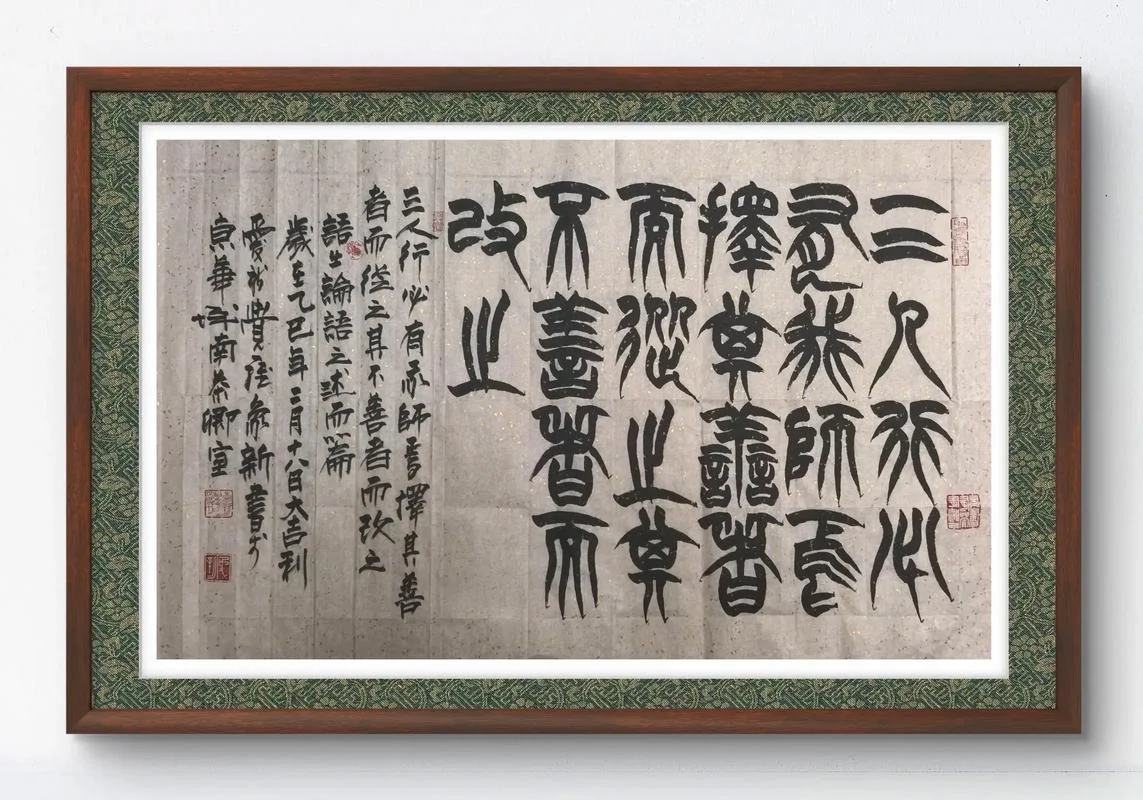 三人行必
有我師焉
擇其善者
而從之其
不善者而
改之
三人行必有我師焉擇其善
者而從之其不善者而改之
語出論語之述而篇
歲在乙巳年二月十八日大吉利
愛新覺羅新書於
京華城南卿室